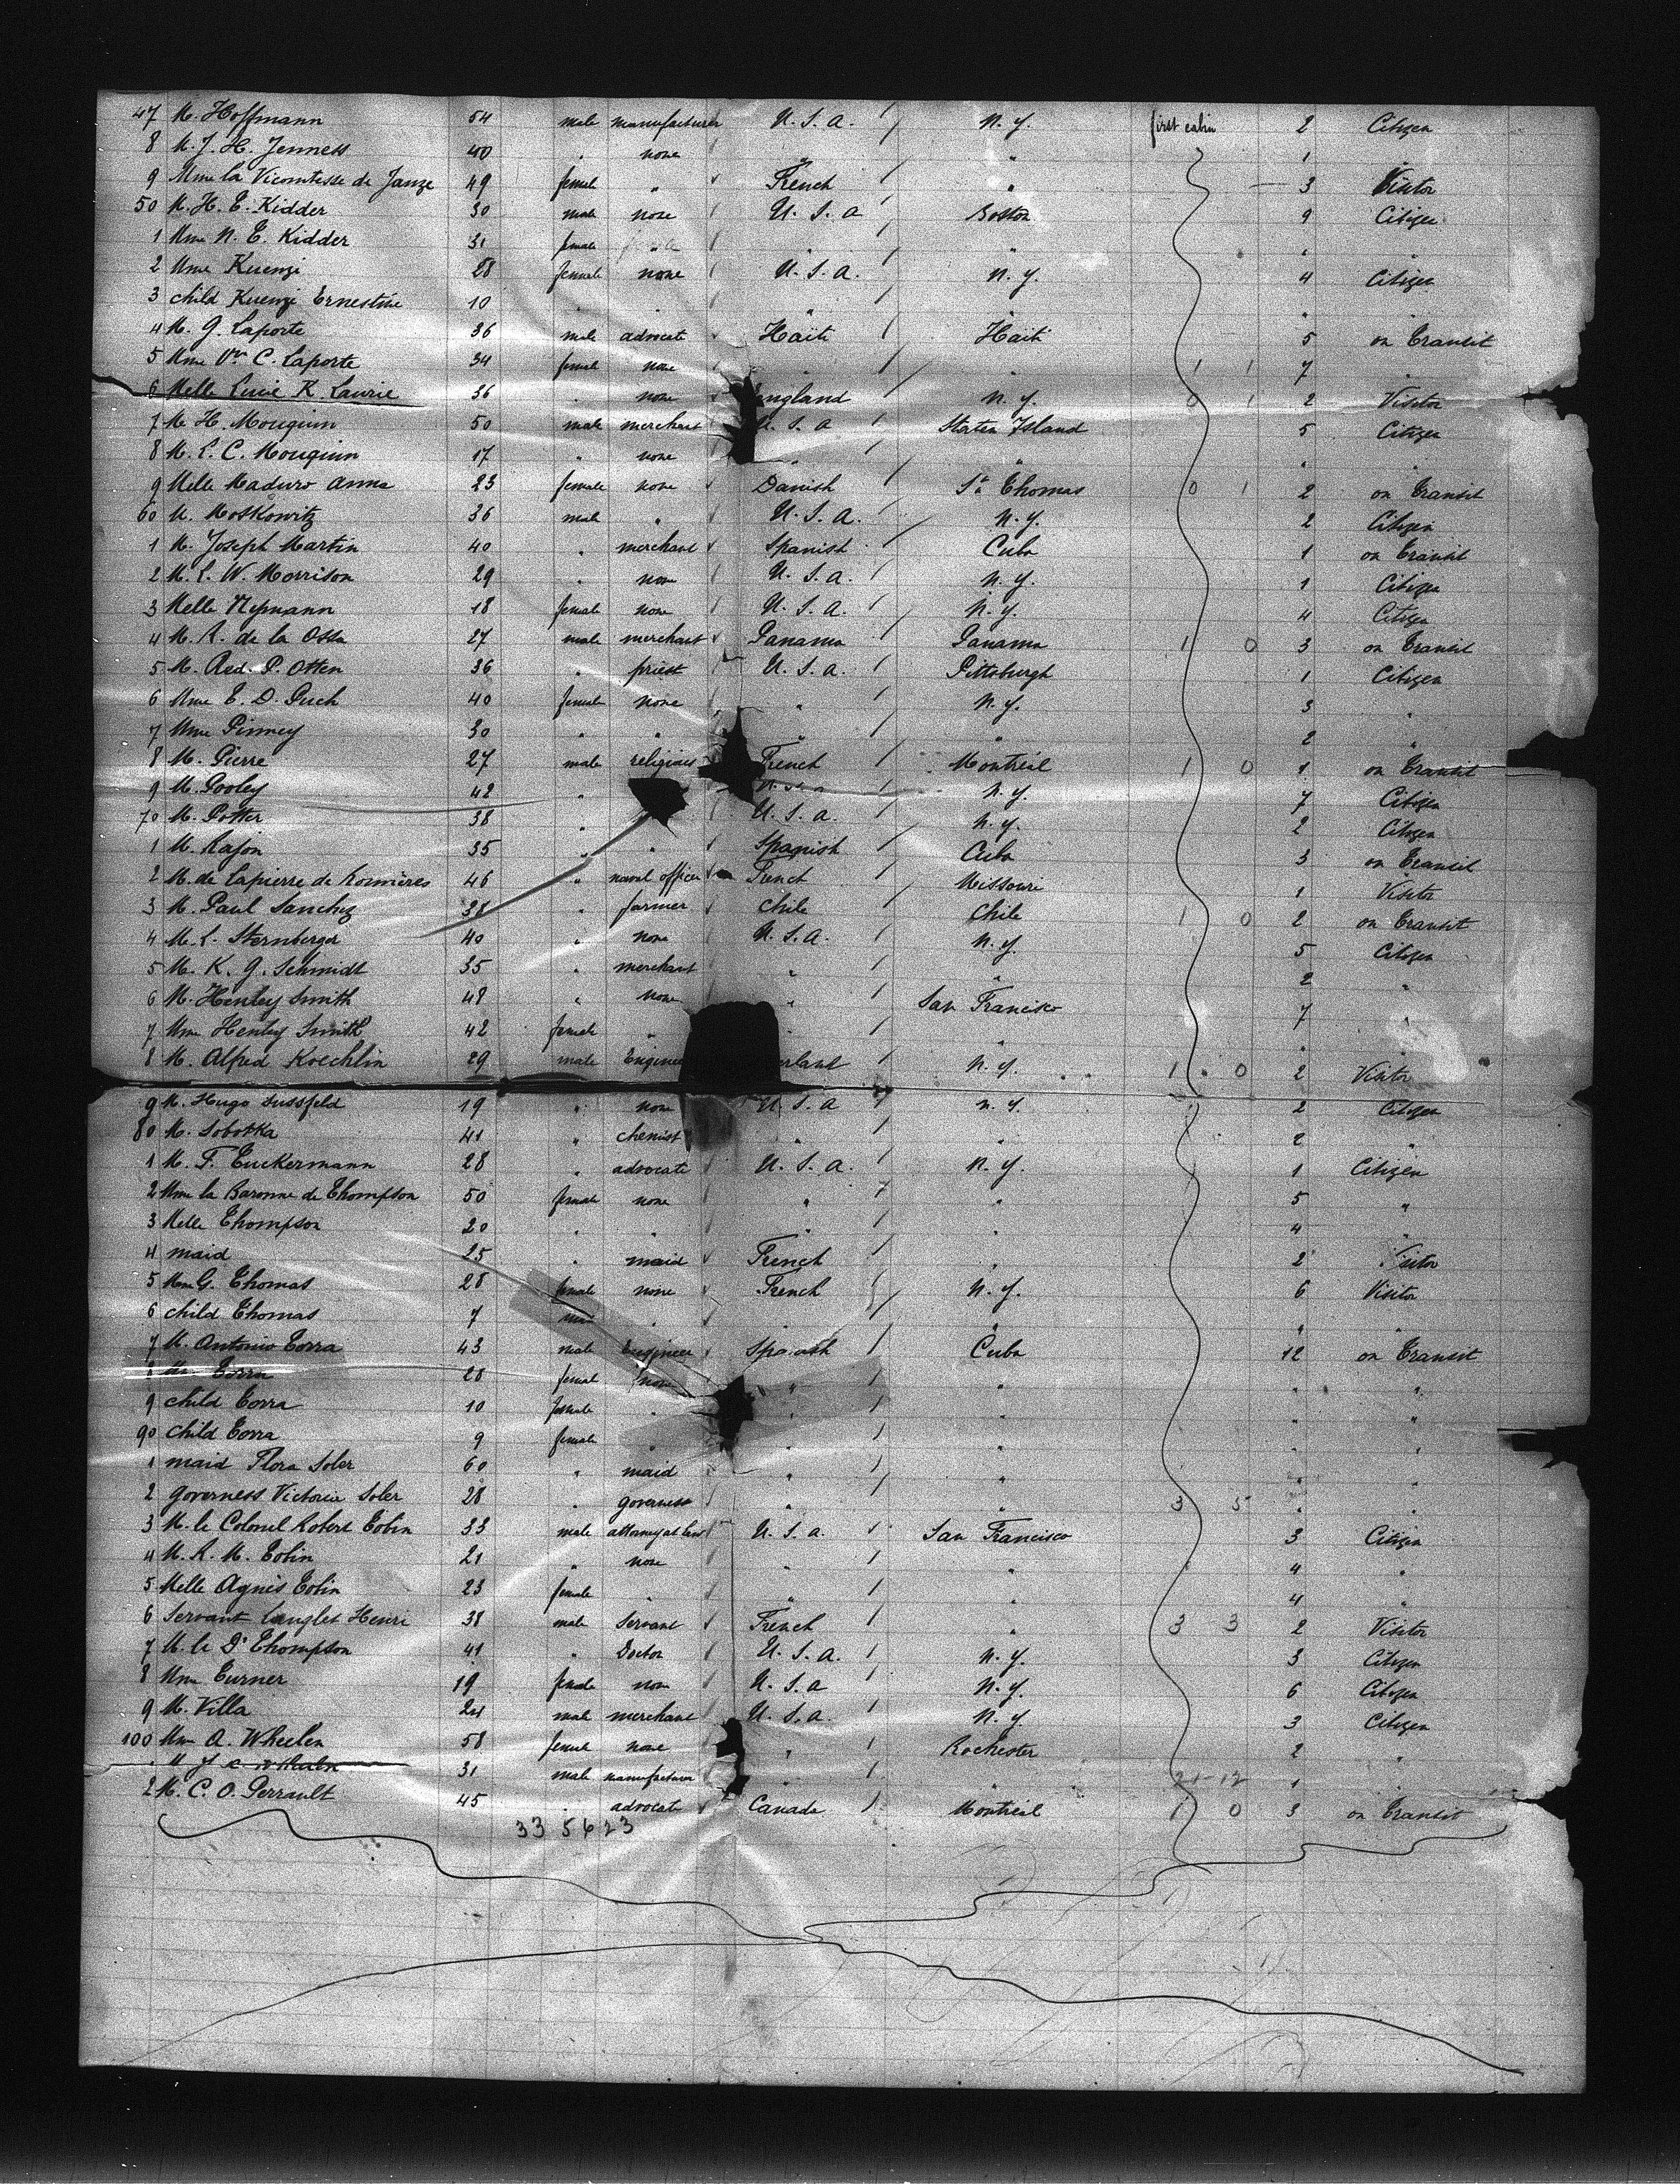 47 M. Hoffmann 54 male manufacturer U.S.A. N.Y. first cabin 2 Citizen
8 M. J. H. Jenness 40 " none " " 1 "
9 Mme la Vicomtesse de Janze 49 female " French " 3 Visitor
50 M. H. E. Kidder 30 male none U.S.a Boston 9 Citizen
1 Mme N. E. Kidder 31 female " " " " "
2 Mme Kuenzi 28 female none U.S.a. N.Y. 4 Citizen
3 child Kuenzi Ernestine 10 " " " " " "
4 M. G. Laporte 36 male advocate Haïti Haïti 5 on Transit
5 Mme C. Laporte 34 female none " " 1 1 7 "
6 Melle Lucie R. Laurie 36 " none England N.Y. 0 1 2 Visitor
7 M. H. Mouquin 50 male merchant U.S.a Staten Island 5 Citizen
8 M. L. C. Mouquin 17 " none " " " "
9 Melle Maduro Anna 23 female none Danish St Thomas 0 1 2 on Transit
60 M. Moskowitz 36 male " U.S.a. N.Y. 2 Citizen
1 M. Joseph Martin 40 " merchant Spanish Cuba 1 on Transit
2 M. L. W. Morrison 29 " none U.S.a. N.Y. 1 Citizen
3 Melle 18 female none U.S.a. N.Y. 4 Citizen
4 M. R. de la Ossa 27 male merchant Panama Panama 1 0 3 on Transit
5 M. Red. P. Otten 36 " priest U.S.a. Pittsburgh 1 Citizen
6 Mme E. D. Puch 40 female none " N.Y. 3 "
7 Mme Pinney 30 " " " " 2 "
8 M. Pierre 27 male religious French Montréal 1 0 1 on Transit
9 M. Pooley 42 " U.S.a N.Y. 7 Citizen
70 M. Potter 38 " U.S.a. N.Y. 2 Citizen
1 M. Rajon 35 " " Spanish Cuba 3 on Transit
2 M. de Lapierre de 46 " naval officer French Missouri 1 Visitor
3 M. Paul Sanchez 38 " farmer Chile Chile 1 0 2 on Transit
4 M. L. Sternberger 40 " none U.S.a. N.Y. 5 Citizen
5 M. K. G. Schmidt 35 " merchant " " 2 "
6 M. Henley Smith 48 " none " San Francisco 7 "
7 Mme Henley Smith 42 female " " " " "
8 M. Alfred Koechlin 29 male Engineer erland N.Y. 1 0 2 Visitor
9 M. Hugo Sussfeld 19 " none U.S.a N.Y. 2 Citizen
80 M. Sobotka 41 " chemist " " 2 "
1 M. F. Tuckermann 28 " advocate U.S.a. N.Y. 1 Citizen
2 Mme la Baronne de Thompson 50 female none " " 5 "
3 Melle Thompson 20 " " " " 4 "
4 maid 25 " maid French " 2 Visitor
5 Mme G. Thomas 28 female none French N.Y. 6 Visitor
6 child Thomas 7 " " " " "
7 M. Antonio Torra 43 male Engineer Spanish Cuba 12 on Transit
8 Torra 28 female none " " " "
9 child Torra 10 female " " " " "
90 child Torra 9 female " " " " "
1 maid Flora Soler 60 " maid " " " "
2 governess Victoria Soler 28 " governess " " 3 5 " "
3 M. le Colonel Robert Tobin 33 male attorney at law U.S.a. San Francisco 3 Citizen
4 M. R. M. Tobin 21 " none " " 4 "
5 Melle Agnès Tobin 23 female " " " 4 "
6 Servant Langlet Henri 38 male Servant French " 3 3 2 Visitor
7 M. le Dr Thompson 41 " Doctor U.S.a. N.Y. 3 Citizen
8 Mme Turner 19 female none U.S.a N.Y. 6 Citizen
9 M. Villa 24 male merchant U.S.a. N.Y. 3 Citizen
100 Mme A. Wheelen 58 female none " Rochester 2 "
M J 31 male manufacturer " " 21-12 1 "
2 M. C. O. Perrault 45 " advocate Canada Montréal 1 0 3 on Transit
33 5623